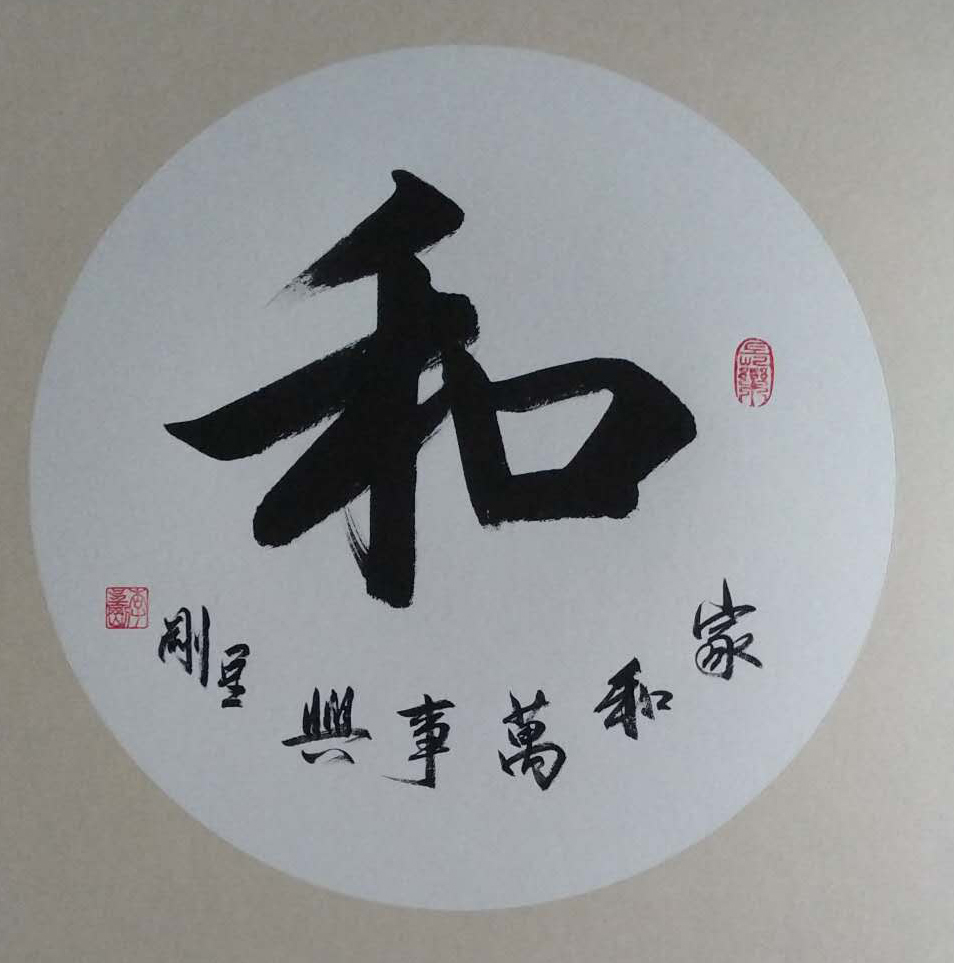 和
家和萬事興
剛